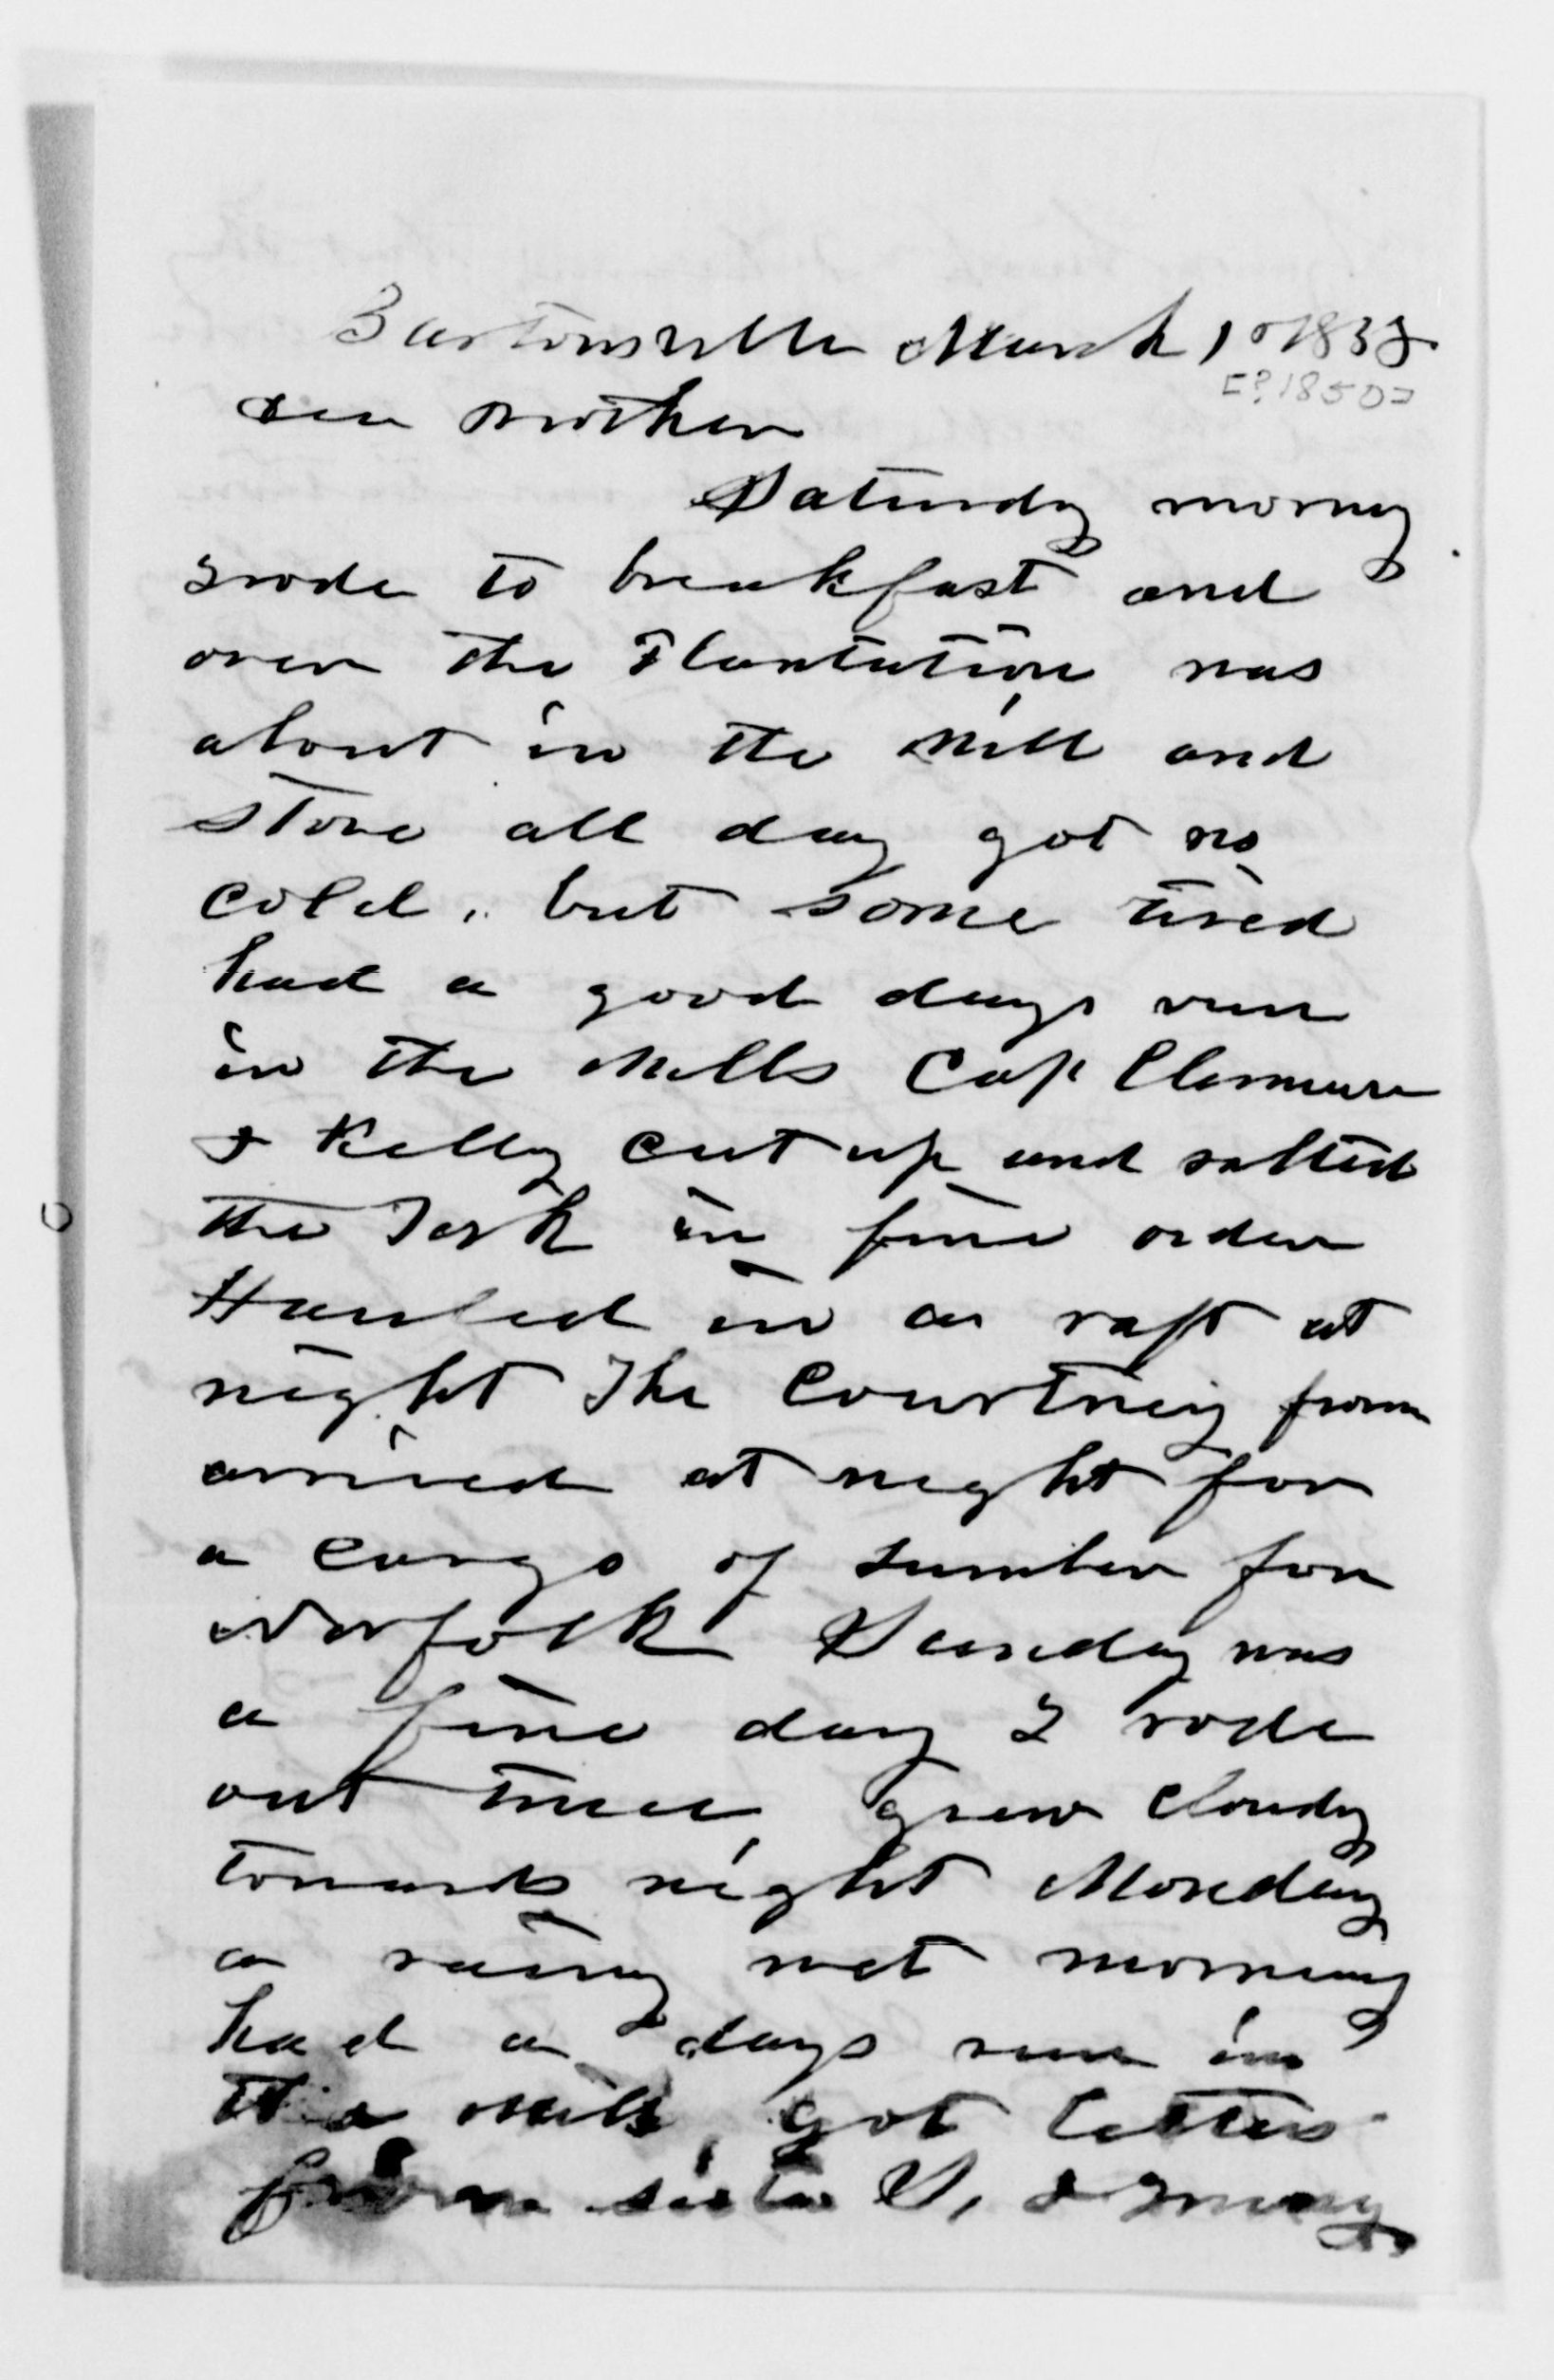 Bartonsville March 10 1838
[?1850]
Dear Mother
Saturdy morng
I rode to breakfast and
over the Plantation was
about in the Mill and
store all day got no
cold, but some tired
had a good days run
in the Mills Cap
& Kelly cut up and salted
the Pork in fine order
Hauled in a raft at
night The Courtney from
arrived at night for
a cargo of Lumber for
Norfolk Sunday was
a fine day I rode
out twice grew cloudy
towards night Monday
a rainy wet morning
had a days run in
the Mills, got letters
from sister S, &